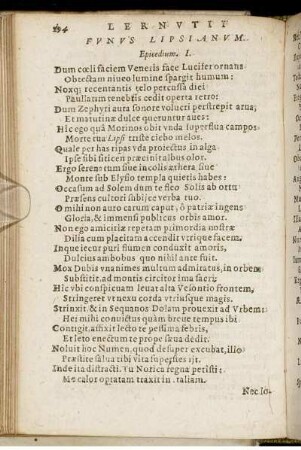 194 LERNVTII
FVNVS LIPSIANVM.
Epicedium. I.
Dum cœli faciem Veneris face Lucifer ornans
Obtectam niueo lumine spargit humum:
Noxq; recentantis telo percussa diei
Paullatim tenebris cedit operta retro:
Dum Zephyri aura sonore volucri perstrepit arua;
Et maturinæ dulce queruntur aues:
Hic ego quà Morinos obit vnda superflua campos
Morte tua Lipsi triste cieho melos.
Quale per has ripas vda proiectus in alga
Ipse sibi siticen præcinit albus olor.
Ergo serenatum siue incolis æthera siue
Monte sub Elysio templa quietis habes:
Occasum ad Solem dum te fico Solis ab ortu
Præsens cultori subijce verba tuo.
O mihi non auro carum caput, ô patriæ ingens
Gloria, & immensi publicus orbis amor.
Non ego amicitiæ repetam primordia nostræ
Dilia cum placitam accendit vtrique facem.
Inque iecur puri fiumen conduxit amoris,
Dulcius ambobus quo nihil ante fuit.
Mox Dubis vnanimes multum admiratus, in orbem
Substitit. ad montis circitor ima sacri;
Hic vbi conspicuam leuat alta Vesontio frontem,
Stringeret vt nexu corda vtriusque magis.
Strinxit. & in Sequanos Dolam prouexit ad Vrbem:
Hei mihi conuictus quàm breue tempus ibi
Contigit. affixit lecto te pessima febris,
Et leto enectum te prope sæua dedit.
Noluit hoc Numen, quod desuper excubat, illo
Præstite salua tibi vita superstes ijt.
Inde ita distracti. Tu Norica regna petisti:
Me calor optatam traxit in Italiam.
Nec lo-